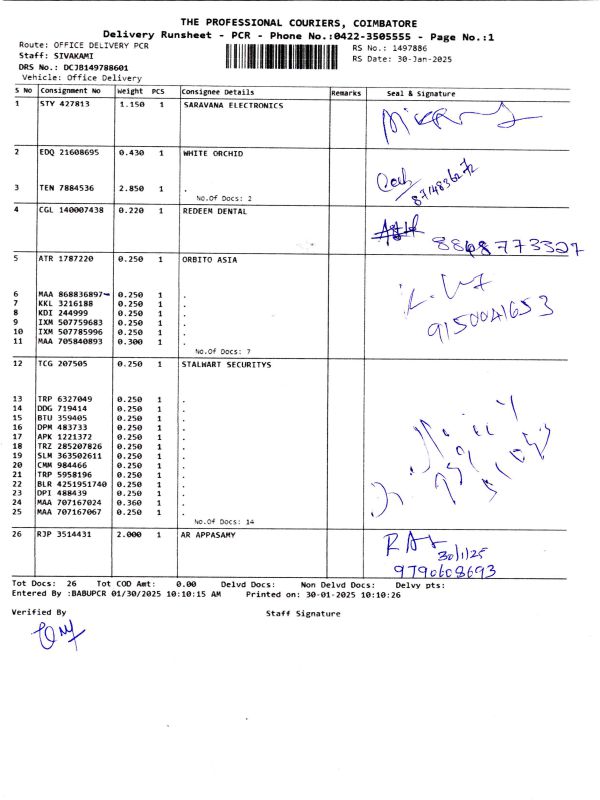 THE PROFESSIONAL COURIERS, COIMBATORE
Delivery Runsheet - PCR - Phone No.:0422-3505555 - Page No.:1
Route: OFFICE DELIVERY PCR
Staff: SIVAKAMI
DRS No.: DCJB149788601
Vehicle: Office Delivery
RS No.: 1497886
RS Date: 30-Jan-2025
S No Consignment No Weight PCS Consignee Details Remarks Seal & Signature
1 STY 427813 1.150 1 SARAVANA ELECTRONICS
2 EDQ 21608695 0.430 1 WHITE ORCHID
3 TEN 7884536 2.850 1 .
No.Of Docs: 2
8714836272
4 CGL 140007438 0.220 1 REDEEM DENTAL
8868773327
5 ATR 1787220 0.250 1 ORBITO ASIA
6 MAA 868836897 0.250 1 .
7 KKL 3216188 0.250 1 .
8 KDI 244999 0.250 1 .
9 IXM 507759683 0.250 1 .
10 IXM 507785996 0.250 1 .
11 MAA 705840893 0.300 1 .
No.Of Docs: 7
9150041653
12 TCG 207505 0.250 1 STALWART SECURITYS
13 TRP 6327049 0.250 1 .
14 DDG 719414 0.250 1 .
15 BTU 359405 0.250 1 .
16 DPM 483733 0.250 1 .
17 APK 1221372 0.250 1 .
18 TRZ 285207826 0.250 1 .
19 SLM 363502611 0.250 1 .
20 CMM 984466 0.250 1 .
21 TRP 5958196 0.250 1 .
22 BLR 4251951740 0.250 1 .
23 DPI 488439 0.250 1 .
24 MAA 707167024 0.360 1 .
25 MAA 707167067 0.250 1 .
No.Of Docs: 14
26 RJP 3514431 2.000 1 AR APPASAMY
30/1/25
9790608693
Tot Docs: 26 Tot COD Amt: 0.00 Delvd Docs: Non Delvd Docs: Delvy pts:
Entered By :BABUPCR 01/30/2025 10:10:15 AM Printed on: 30-01-2025 10:10:26
Verified By Staff Signature